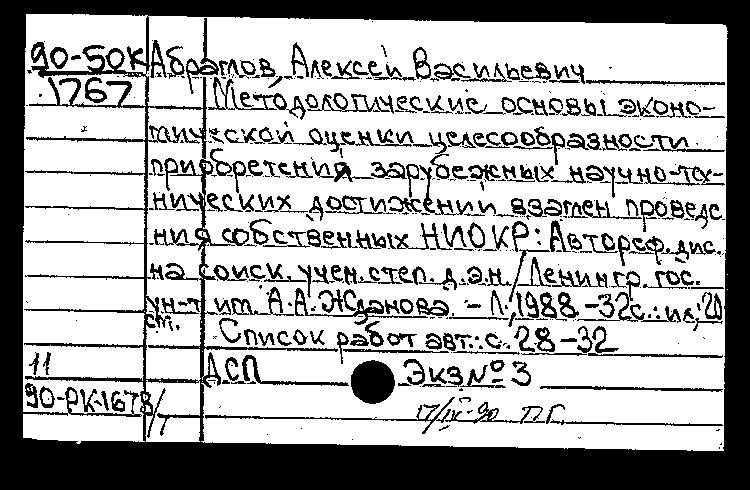 90-50К Абрамов, Алексей Васильевич
1767 Методологические основы эконо-
мической оценки целесообразности
приобретения зарубежных научно-тех-
нических достижений взамен проведе
ния собственных НИОКР: Автореф. дис.
на соиск. учен. степ. д.э.н./Ленингр. гос.
ун-т им. А.А. Жданова. - Л., 1988. - 32с.: ил; 20
см. Список работ авт.: с. 28-32
11 ДСП Экз № 3
90-РК-1678/1 17/IV-90 П.Г.